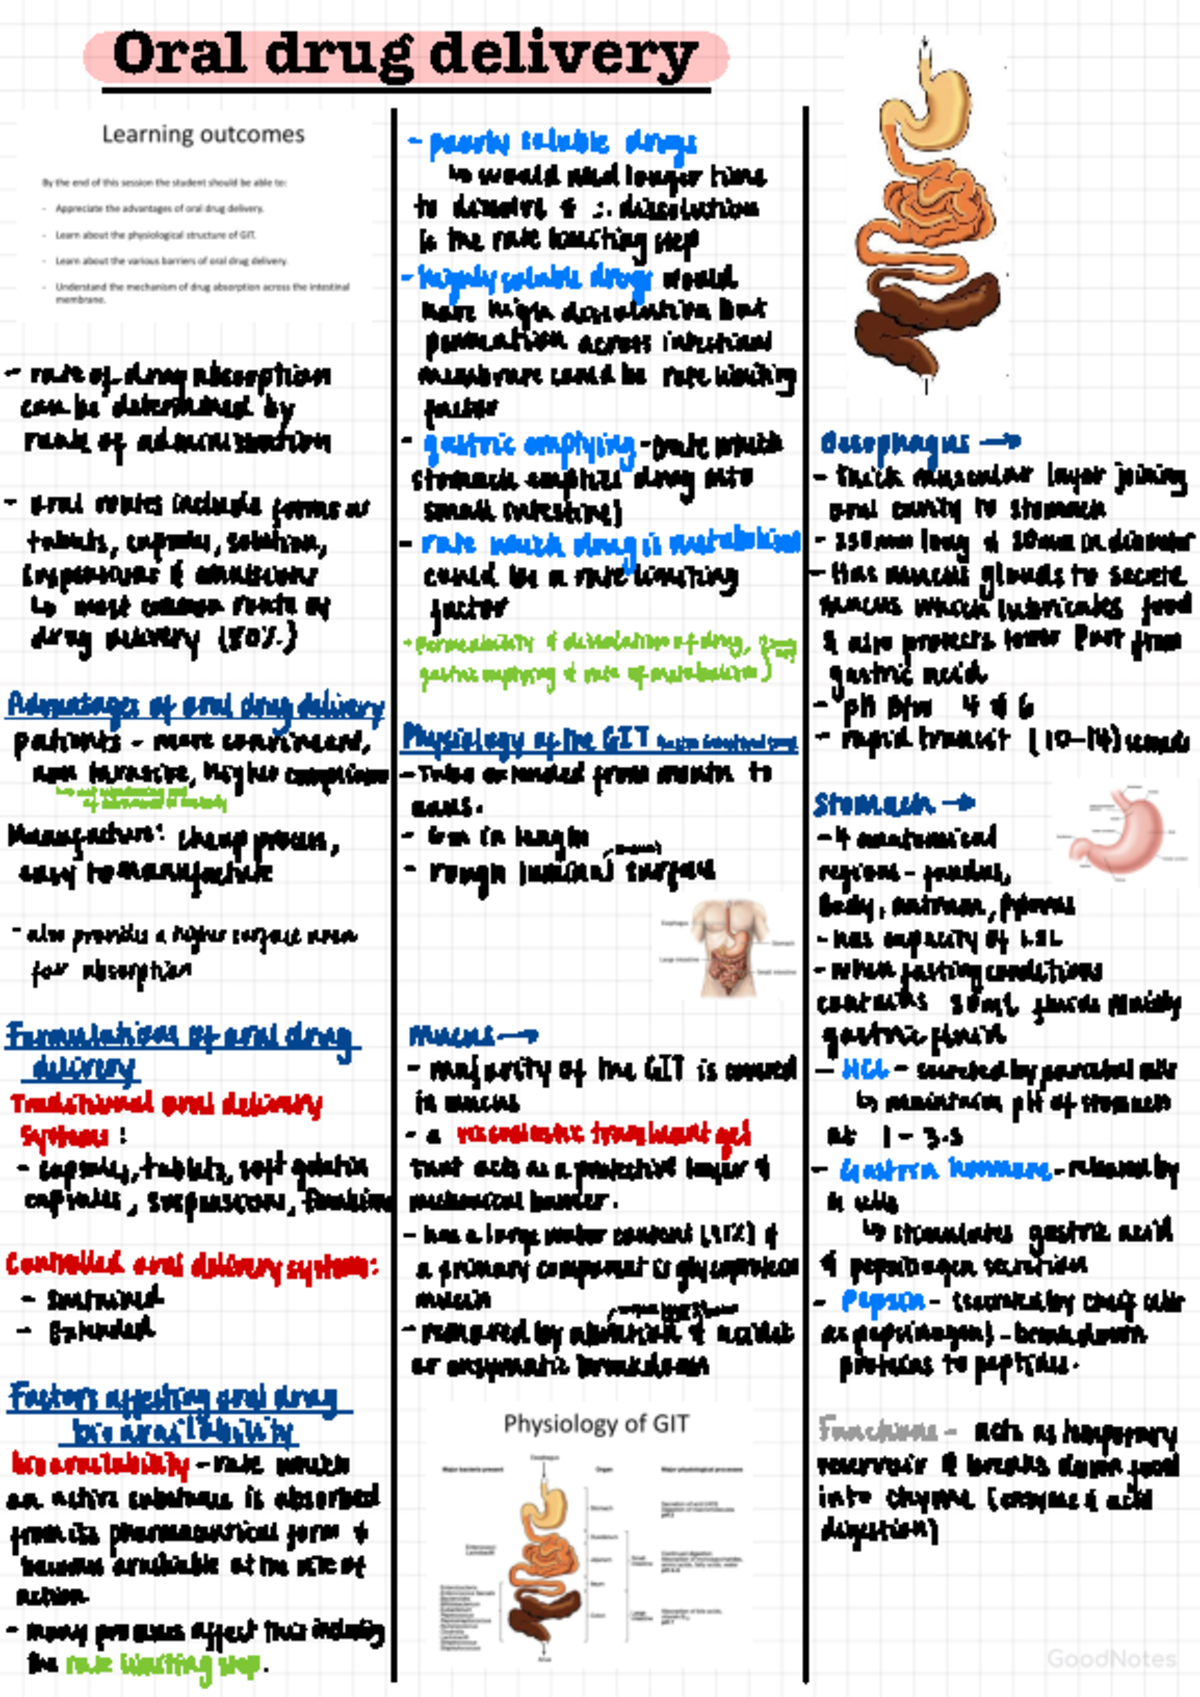 Oral drug delivery
Learning outcomes
By the end of this session the student should be able to:
- Appreciate the advantages of oral drug delivery.
- Learn about the physiological structure of GIT.
- Learn about the various barriers of oral drug delivery.
- Understand the mechanism of drug absorption across the intestinal
membrane.
- rate of drug absorption
can be determined by
route of administration
- oral routes include forms as
tablets, capsules, solution,
suspensions & emulsions
↳ most common route of
drug delivery (80%)
Advantages of oral drug delivery
patients - more convinient,
non invasive, higher compliance
Manufacture: cheap process,
easy to manufacture
- also provides a higher surface area
for absorption
Formulations of oral drug
delivery
Traditional oral delivery
systems:
- capsules, tablets, soft gelatin
capsules, suspensions,
Controlled oral delivery systems:
- Sustained
- Extended
Factors affecting oral drug
bioavailability
bioavailability - rate which
an active substance is absorbed
from its pharmaceutical form &
becomes available at the site of
action.
- many processes affect this including
the rate limiting step.
- poorly soluble drugs
↳ would need longer time
to dissolve & ∴ dissolution
is the rate limiting step
- highly soluble drugs would
have high dissolution but
permeation across intestinal
membrane could be rate limiting
factor
- gastric emptying - (rate which
stomach empties drug into
small intestine)
- rate which drug is metabolised
could be a rate limiting
factor
permeability & dissolution of drug,
gastric emptying & rate of metabolism
Physiology of the GIT
- Tube extended from mouth to
anus.
- 6m in length
- rough luminal surface
Esophagus
Stomach
Large intestine
Small intestine
Mucus →
- majority of the GIT is covered
in mucus
- a viscoelastic translucent gel
that acts as a protective layer &
mechanical barrier.
- has a large water content (95%) &
a primary component is glycoprotein
mucin
- removed by abrasion & acidic
or enzymatic breakdown
Physiology of GIT
Esophagus
Major bacteria present
Organ
Major physiological processes
Stomach
Duodenum
Jejunum
Ileum
Colon
Small
intestine
Large
intestine
Anus
Oesophagus →
- thick muscular layer joining
oral cavity to stomach
- 250mm long & 20mm in diameter
- Has mucus glands to secrete
mucus which lubricates food
& also protects lower part from
gastric acid
- pH btw 4 & 6
- rapid transit (10-14) seconds
Stomach →
- 4 anatomical
regions - fundus,
body, antrum, pylorus
- has capacity of 1.5L
- when fasting conditions
contains 50mL fluids mainly
gastric fluid
- HCl - secreted by parietal cells
↳ maintains pH of stomach
at 1 - 3.5
- Gastrin hormone - released by
G cells
↳ stimulates gastric acid
& pepsinogen secretion
- Pepsin - (secreted by chief cells
as pepsinogen) - breakdown
proteins to peptides.
Functions - acts as temporary
reservoir & breaks down food
into chyme (enzyme & acid
digestion)
GoodNotes